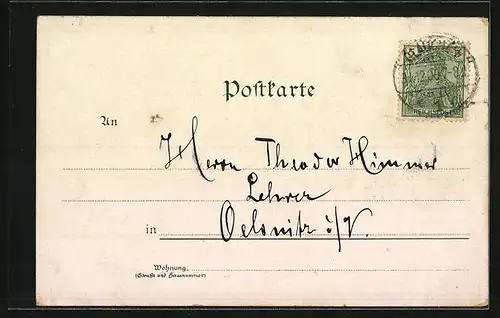 Postkarte
An
Herrn Theodor Himmer
Lehrer
in Oelsnitz i/V.
Wohnung
(Straße und Hausnummer)